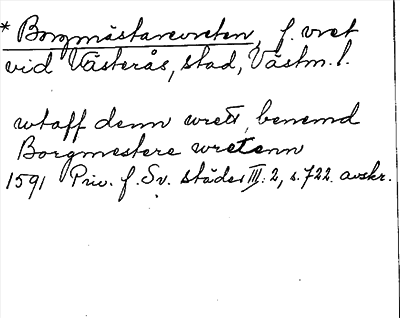 * Borgmästarevreten, f. vret
vid Västerås, stad, Västm. l.
wtaff denn wrett, benemd
Borgmestere wretenn
1591 Priv. f. Sv. städer III. 2, s. 722. avskr.